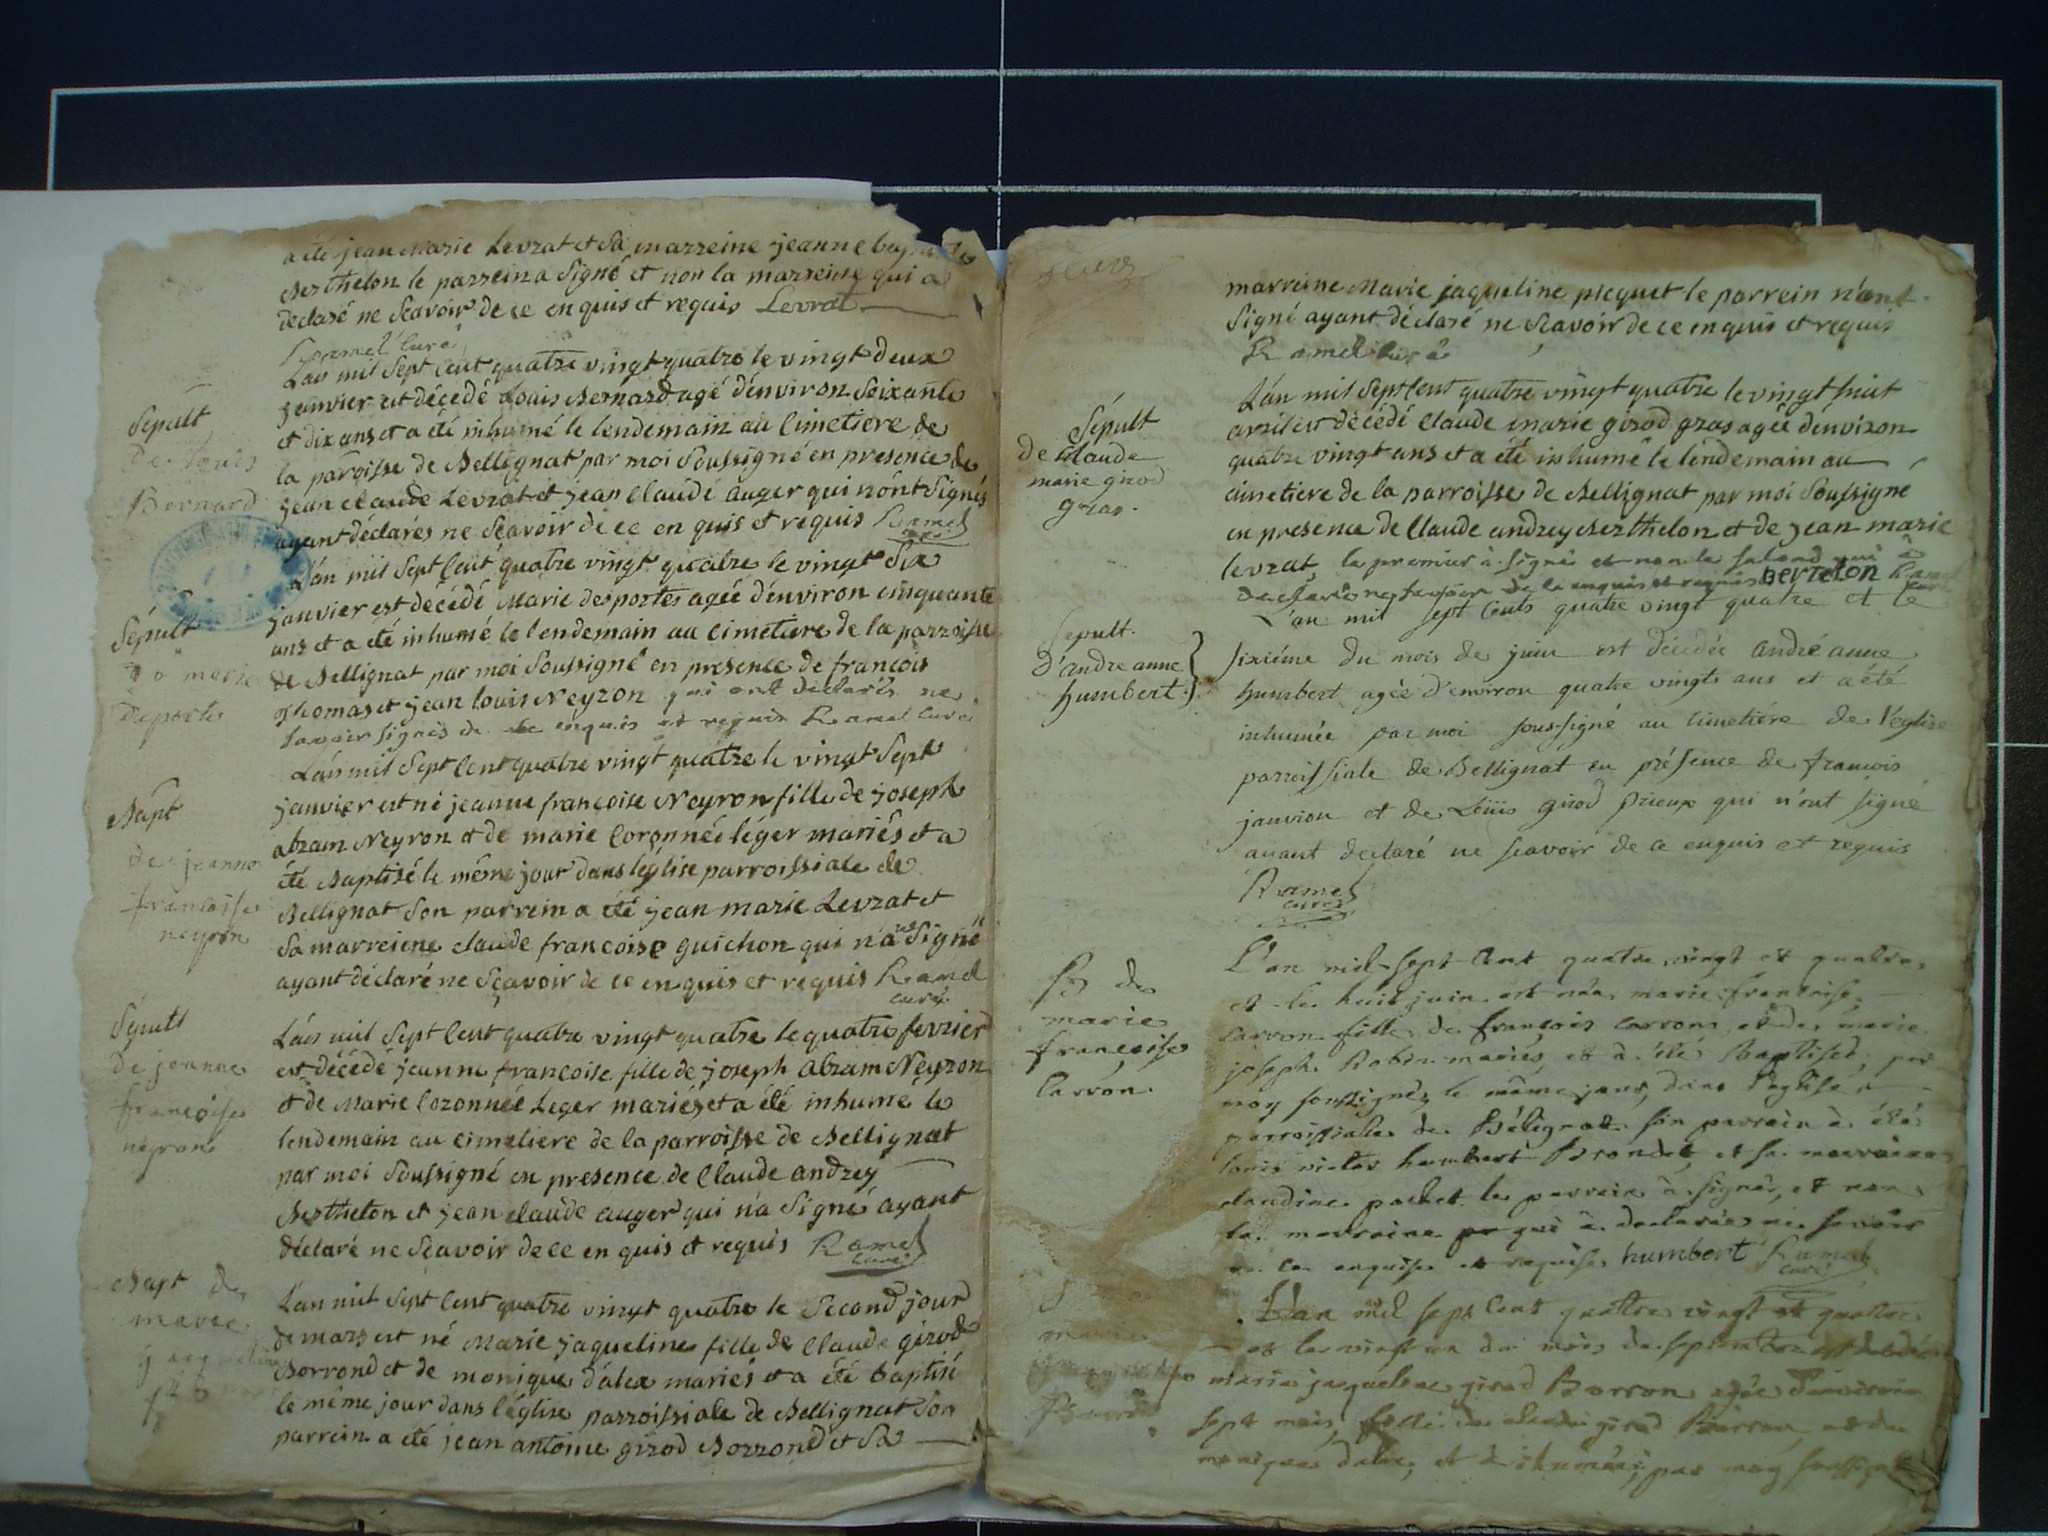 a été jean Marie Levrat et sa marreine jeanne
Berthelon le parrein a signé et non la marreine qui a
declaré ne sçavoir de ce enquis et requis Levrat
Ramel curé
L'an mil sept cent quatre vingt quatre le vingt deux
janvier est décédé Louis Bernard agé d'environ soixante
et dix ans et a été inhumé le lendemain au cimetiere de
la paroisse de Bellignat par moi soussigné en presence de
jean claude Levrat et jean Claude auger qui n'ont signés
ayant déclarés ne sçavoir de ce enquis et requis Ramel
curé
L'an mil sept cent quatre vingt quatre le vingt six
janvier est décédé Marie desportes agée d'environ cinquante
ans et a été inhumé le lendemain au cimetiere de la parroisse
de Bellignat par moi soussigné en presence de françois
Thomas et jean louis Neyron qui ont déclarés ne
savoir signés de ce enquis et requis Ramel curé
L'an mil sept cent quatre vingt quatre le vingt sept
janvier est né jeanne françoise Neyron fille de joseph
abram Neyron et de marie Coronnée léger mariés et a
été Baptisé le même jour dans l'église parroissiale de
Bellignat son parrein a été jean marie Levrat et
sa marreiene claude françoise guichon qui n'a signé
ayant déclaré ne sçavoir de ce enquis et requis Ramel
curé
L'an mil sept cent quatre vingt quatre le quatre fevrier
est décédé jeanne françoise fille de joseph abram Neyron
et de Marie Coronnée Leger mariés et a été inhumé le
lendemain au cimetiere de la parroisse de Bellignat
par moi soussigné en presence de Claude andrey
Berthelon et jean claude auger qui n'a signé ayant
déclaré ne sçavoir de ce enquis et requis Ramel
curé
L'an mil sept cent quatre vingt quatre le second jour
de mars est né Marie jaqueline fille de Claude girod
Borrond et de monique d'alex mariés et a été baptisé
le même jour dans l'église parroissiale de Bellignat son
parrein a été jean antoine girod Borrond et sa
Sépult
de Louis
Bernard
Sépult
marie
deportes
Bapt
de jeanne
françoise
neyron
Sépult
de jeanne
françoise
neyron
Bapt de
marie
marreine Marie jaqueline picquet le parrein n'ont
signé ayant déclaré ne sçavoir de ce enquis et requis
Ramel curé
L'an mil sept cent quatre vingt quatre le vingt huit
avril est décédé Claude marie girod gras agée d'environ
quatre vingt ans et a été inhumé le lendemain au
cimetiere de la parroisse de Bellignat par moi soussigné
en presence de Claude andrey Berthelon et de jean marie
levrat, le premier à signé et non le second qui à
declaré ne savoir de ce enquis et requis berteton Ramel
L'an mil sept cents quatre vingt quatre et le
sixiéme du mois de juin est décédée andré anne
humbert agée d'environ quatre vingts ans et a été
inhumée par moi soussigné au cimetiére de l'église
parroissiale de Bellignat en présence de francois
janvion et de Loüis girod prieux qui n'ont signé
ayant declaré ne scavoir de ce enquis et requis
Ramel
curé
L'an mil sept cent quatre vingt et quatre
et le huit juin est née marie françoise
carron fille de françois carron et de marie
joseph Robin mariés, et à été baptisée par
moy soussigné, le même jour, dans l'eglise
parroissialle de Bélignat son parrein à été
louis victor humbert Brondet et sa marraine
claudine pochet le parrein à signé, et non
la marraine qui à declarée ne savoir
de ce enquise et requise humbert Ramel
curé
L'an mil sept cent quattre vingt et quattre
et le vingt un du mois de septembre est décédée
marie jaqueline girod Borron agée d'environ
sept mois, fille de claude girod Borron et de
monique dalex, et à inhumée, par moy soussigné
Sépult
de Claude
marie girod
gras.
Sépult.
d'andre anne
humbert.
de
marie
françoise
Carron.